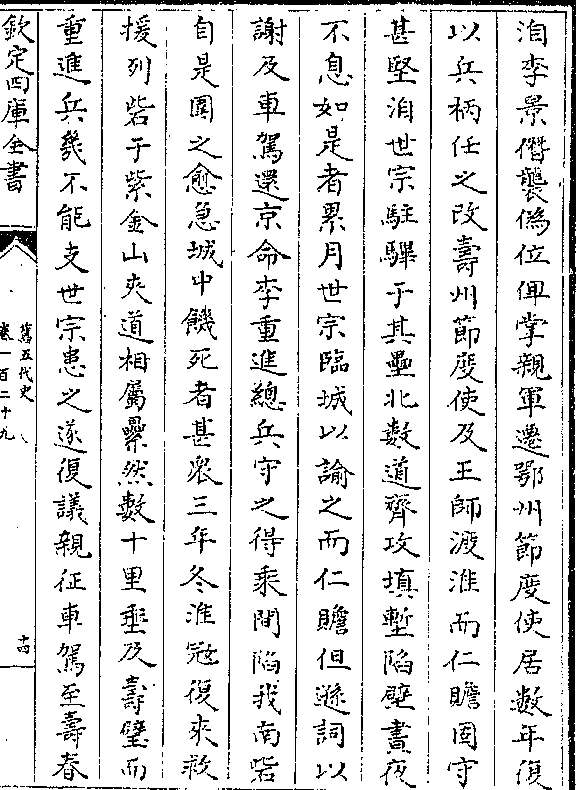 洎李景僭襲偽位俾掌親軍遷鄂州節度使居數年復
以兵柄任之改壽州節度使及王師渡淮而仁贍固守
甚堅洎世宗駐驆于其壘北數道齊攻填塹陷壁晝夜
不息如是者累月世宗臨城以諭之而仁贍但遜詞以
謝及車駕還京命李重進總兵守之得乘間陷我南砦
自是圍之愈急城中饑死者甚衆三年冬淮㓂復來救
援列砦于紫金山夾道相屬纍然數十里垂及壽壁而
重進兵幾不能支世宗患之遂復議親征車駕至壽春
欽定四庫全書
舊五代史
卷一百二十九
十四